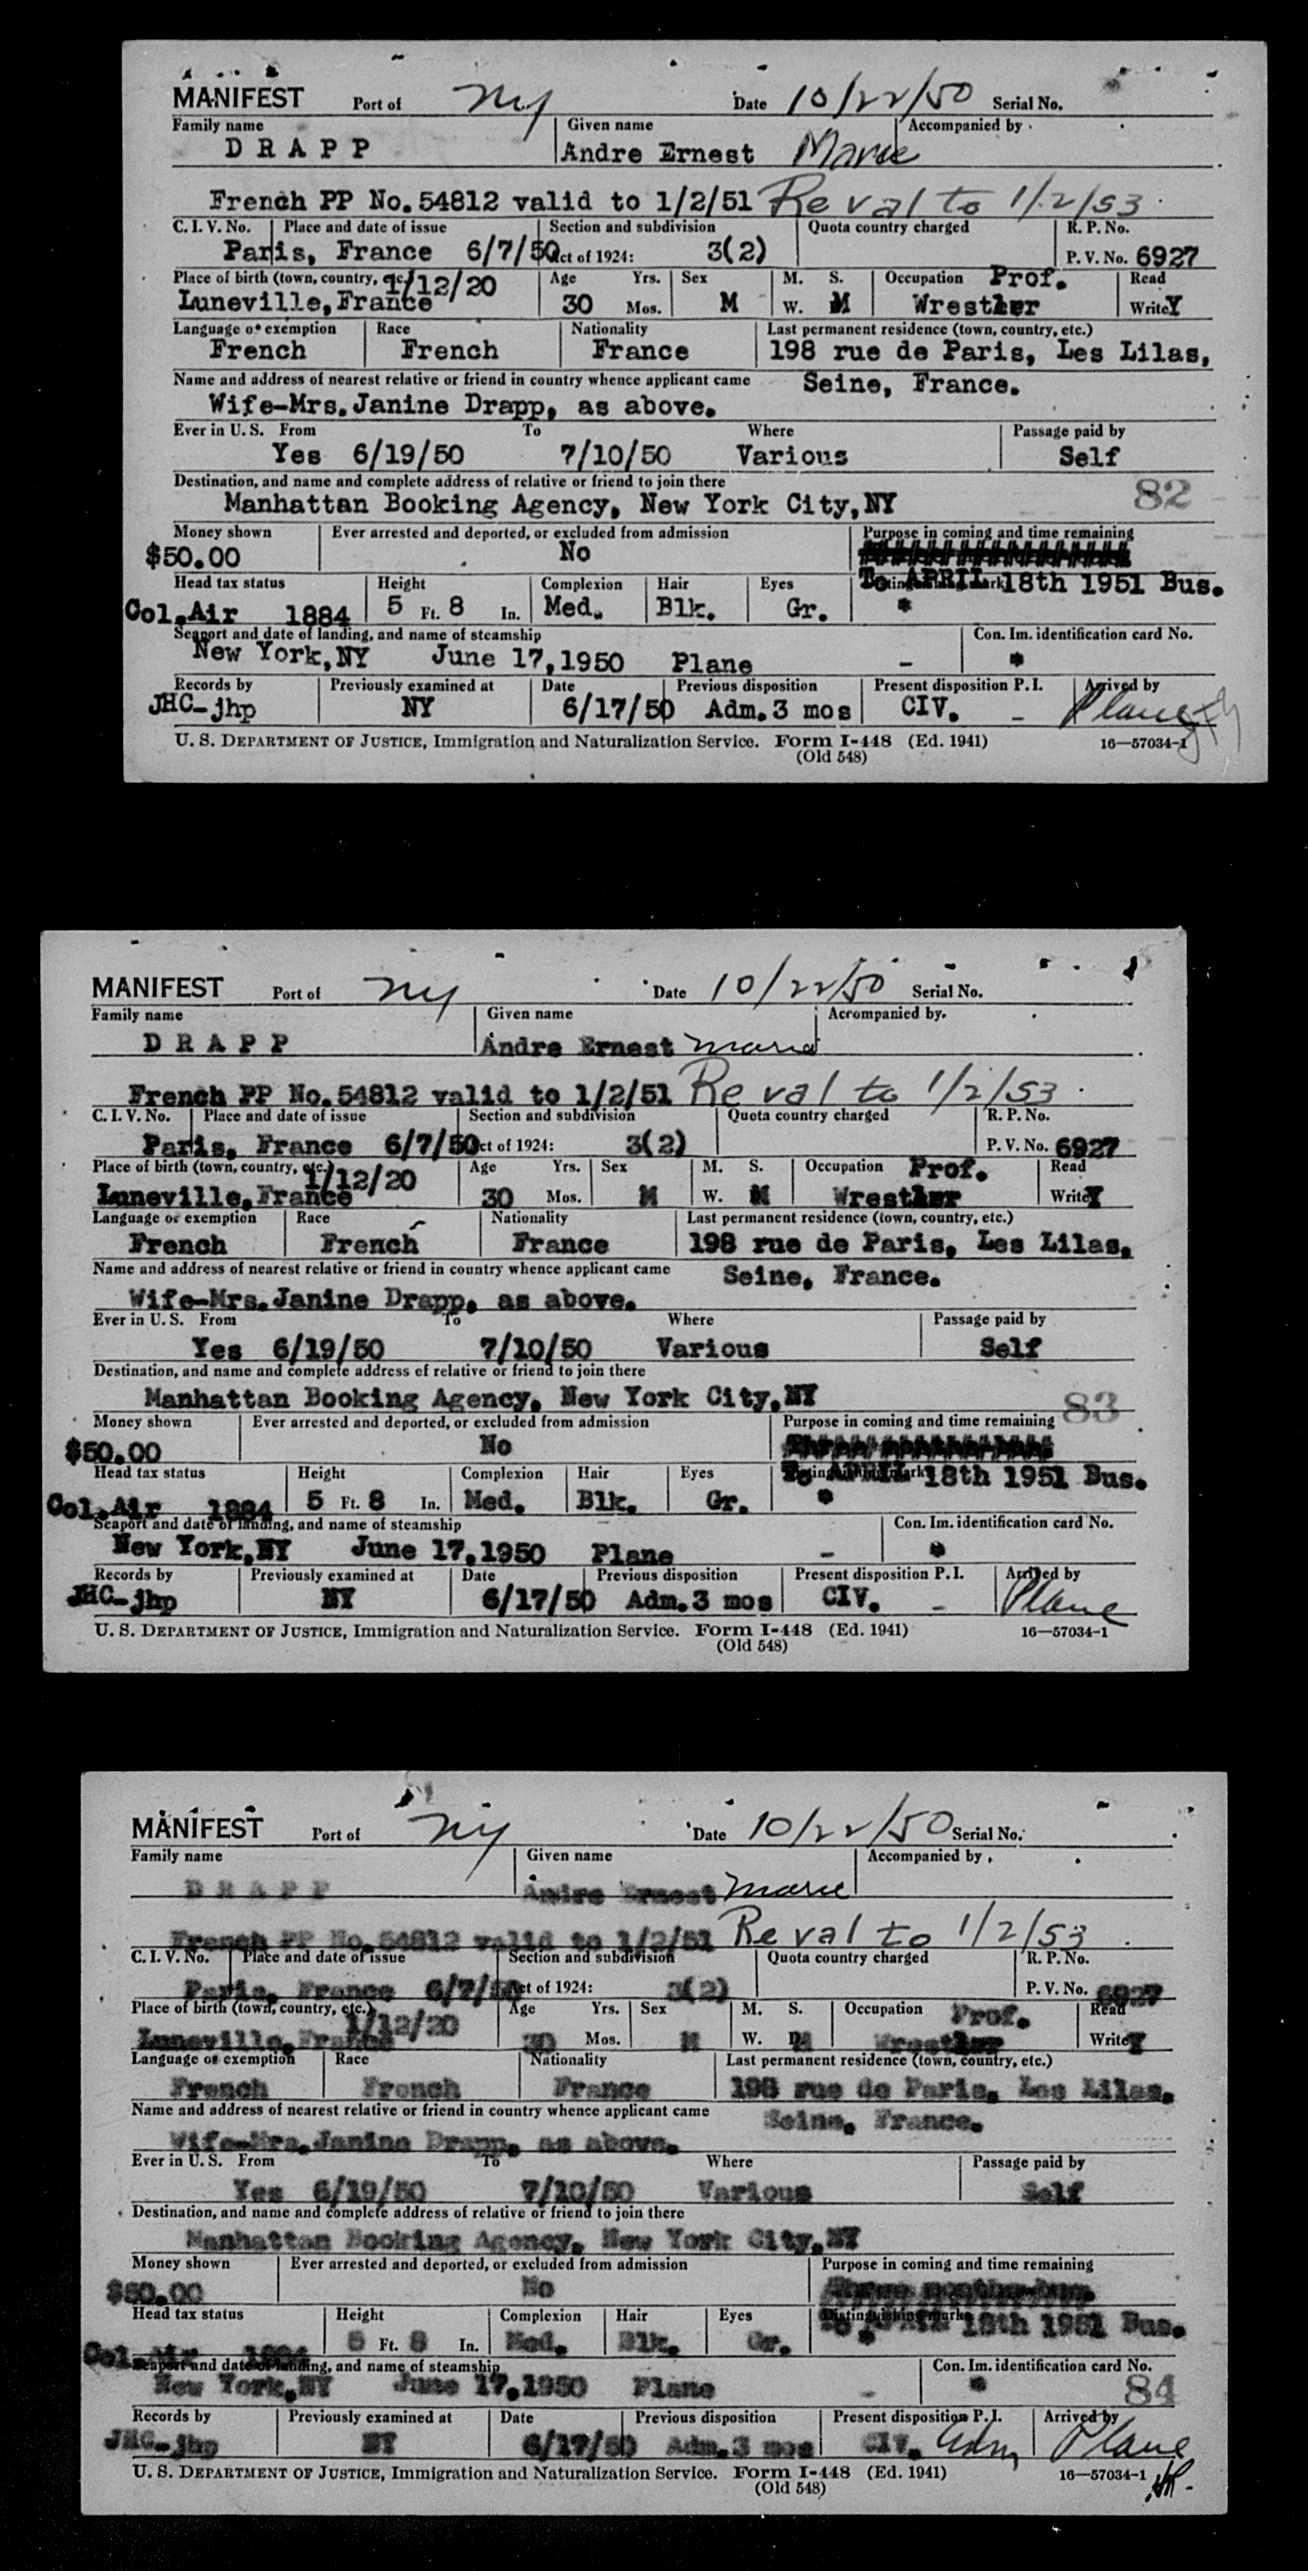 MANIFEST Port of NY Date 10/22/50 Serial No.
Family name Given name Accompanied by
DRAPP Andre Ernest Marie
French PP No. 54812 valid to 1/2/51 Reval to 1/2/53
C. I. V. No. Place and date of issue Section and subdivision Quota country charged R. P. No.
Paris, France 6/7/50 Act of 1924: 3(2) P. V. No. 6927
Place of birth (town, country, etc.) 1/12/20 Age Yrs. Sex M. S. Occupation Prof. Read
Luneville, France 30 Mos. M W. M Wrestler Write Y
Language or exemption Race Nationality Last permanent residence (town, country, etc.)
French French France 198 rue de Paris, Les Lilas,
Name and address of nearest relative or friend in country whence applicant came Seine, France.
Wife-Mrs. Janine Drapp, as above.
Ever in U. S. From To Where Passage paid by
Yes 6/19/50 7/10/50 Various Self
Destination, and name and complete address of relative or friend to join there
Manhattan Booking Agency, New York City, NY 82
Money shown Ever arrested and deported, or excluded from admission Purpose in coming and time remaining
$50.00 No
Head tax status Height Complexion Hair Eyes To APRIL 18th 1951 Bus.
Col. Air 1884 5 Ft. 8 In. Med. Blk. Gr. *
Seaport and date of landing, and name of steamship Con. Im. identification card No.
New York, NY June 17, 1950 Plane - *
Records by Previously examined at Date Previous disposition Present disposition P. I. Arrived by
JHC-jhp NY 6/17/50 Adm. 3 mos CIV. - Plane
U. S. DEPARTMENT OF JUSTICE, Immigration and Naturalization Service. Form I-448 (Ed. 1941) 16—57034-1
(Old 548)
MANIFEST Port of NY Date 10/22/50 Serial No.
Family name Given name Accompanied by
DRAPP Andre Ernest Marie
French PP No. 54812 valid to 1/2/51 Reval to 1/2/53
C. I. V. No. Place and date of issue Section and subdivision Quota country charged R. P. No.
Paris, France 6/7/50 Act of 1924: 3(2) P. V. No. 6927
Place of birth (town, country, etc.) 1/12/20 Age Yrs. Sex M. S. Occupation Prof. Read
Luneville, France 30 Mos. M W. M Wrestler Write Y
Language or exemption Race Nationality Last permanent residence (town, country, etc.)
French French France 198 rue de Paris, Les Lilas,
Name and address of nearest relative or friend in country whence applicant came Seine, France.
Wife-Mrs. Janine Drapp, as above.
Ever in U. S. From To Where Passage paid by
Yes 6/19/50 7/10/50 Various Self
Destination, and name and complete address of relative or friend to join there
Manhattan Booking Agency, New York City, NY
Money shown Ever arrested and deported, or excluded from admission Purpose in coming and time remaining 83
$50.00 No
Head tax status Height Complexion Hair Eyes To APRIL 18th 1951 Bus.
Col. Air 1884 5 Ft. 8 In. Med. Blk. Gr. *
Seaport and date of landing, and name of steamship Con. Im. identification card No.
New York, NY June 17, 1950 Plane - *
Records by Previously examined at Date Previous disposition Present disposition P. I. Arrived by
JHC-jhp NY 6/17/50 Adm. 3 mos CIV. - Plane
U. S. DEPARTMENT OF JUSTICE, Immigration and Naturalization Service. Form I-448 (Ed. 1941) 16—57034-1
(Old 548)
MANIFEST Port of NY Date 10/22/50 Serial No.
Family name Given name Accompanied by
DRAPP Andre Ernest Marie
French PP No. 54812 valid to 1/2/51 Reval to 1/2/53
C. I. V. No. Place and date of issue Section and subdivision Quota country charged R. P. No.
Paris, France 6/7/50 Act of 1924: 3(2) P. V. No. 6927
Place of birth (town, country, etc.) 1/12/20 Age Yrs. Sex M. S. Occupation Prof. Read
Luneville, France 30 Mos. M W. M Wrestler Write Y
Language or exemption Race Nationality Last permanent residence (town, country, etc.)
French French France 198 rue de Paris, Les Lilas,
Name and address of nearest relative or friend in country whence applicant came Seine, France.
Wife-Mrs. Janine Drapp, as above.
Ever in U. S. From To Where Passage paid by
Yes 6/19/50 7/10/50 Various Self
Destination, and name and complete address of relative or friend to join there
Manhattan Booking Agency, New York City, NY
Money shown Ever arrested and deported, or excluded from admission Purpose in coming and time remaining
$50.00 No Three months-bus.
Head tax status Height Complexion Hair Eyes Distinguishing marks To APRIL 18th 1951 Bus.
Col. Air 1884 5 Ft. 8 In. Med. Blk. Gr. *
Seaport and date of landing, and name of steamship Con. Im. identification card No.
New York, NY June 17, 1950 Plane - * 84
Records by Previously examined at Date Previous disposition Present disposition P. I. Arrived by
JHC-jhp NY 6/17/50 Adm. 3 mos CIV. Adm Plane
U. S. DEPARTMENT OF JUSTICE, Immigration and Naturalization Service. Form I-448 (Ed. 1941) 16—57034-1
(Old 548)